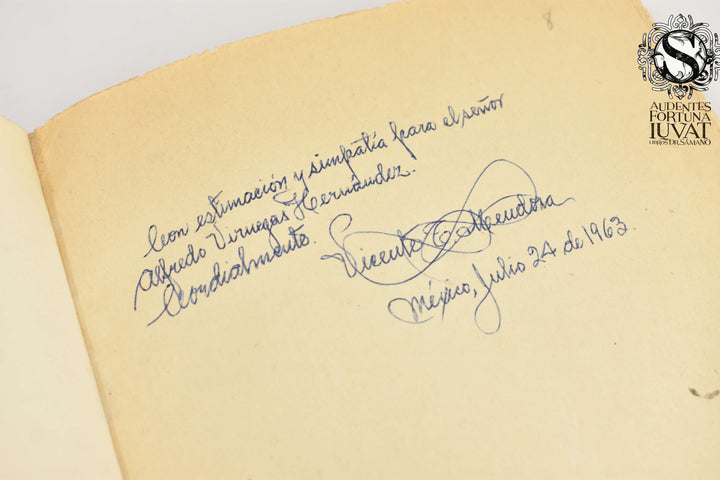 Con estimación y simpatía para el señor
Alfredo Virnegas Hernández.
Cordialmente.
Vicente T. Mendoza
México, Julio 24 de 1963.
8
S
AUDENTES
FORTUNA
IUVAT
LIBROS DR. SÁMANO